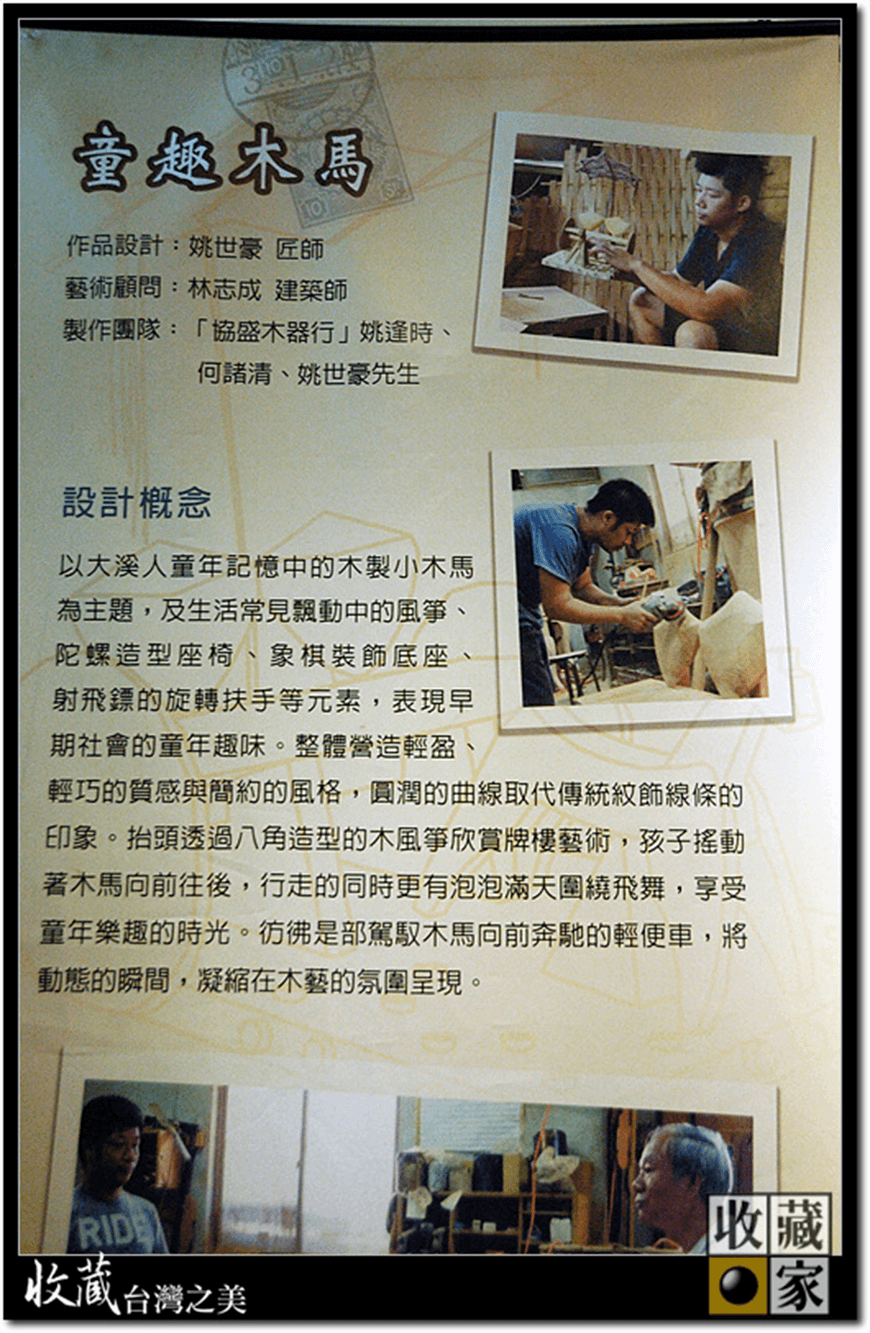 童趣木馬
作品設計：姚世豪 匠師
藝術顧問：林志成 建築師
製作團隊：「協盛木器行」姚逢時、
何諸清、姚世豪先生
設計概念
以大溪人童年記憶中的木製小木馬
為主題，及生活常見飄動中的風箏、
陀螺造型座椅、象棋裝飾底座、
射飛鏢的旋轉扶手等元素，表現早
期社會的童年趣味。整體營造輕盈、
輕巧的質感與簡約的風格，圓潤的曲線取代傳統紋飾線條的
印象。抬頭透過八角造型的木風箏欣賞牌樓藝術，孩子搖動
著木馬向前往後，行走的同時更有泡泡滿天圍繞飛舞，享受
童年樂趣的時光。彷彿是部駕馭木馬向前奔馳的輕便車，將
動態的瞬間，凝縮在木藝的氛圍呈現。
RIDE
收藏家
收藏台灣之美